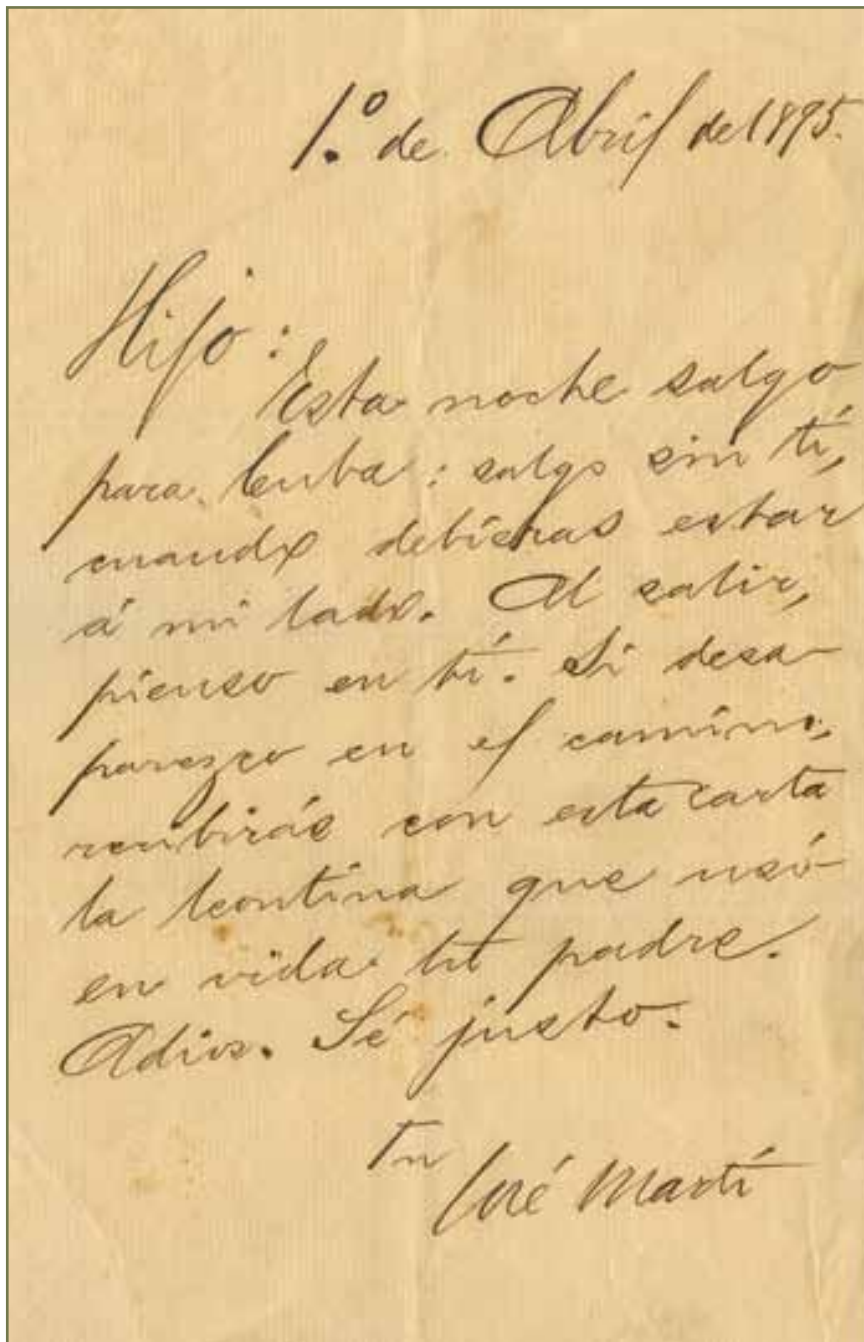 1.º de Abril de 1895.
Hijo:
Esta noche salgo
para Cuba: salgo sin tí,
cuando debieras estar
á mi lado. Al salir,
pienso en tí. Si desa-
parezco en el camino,
recibirás con esta carta
la leontina que usó
en vida tu padre.
Adios. Sé justo.
Tu
José Martí